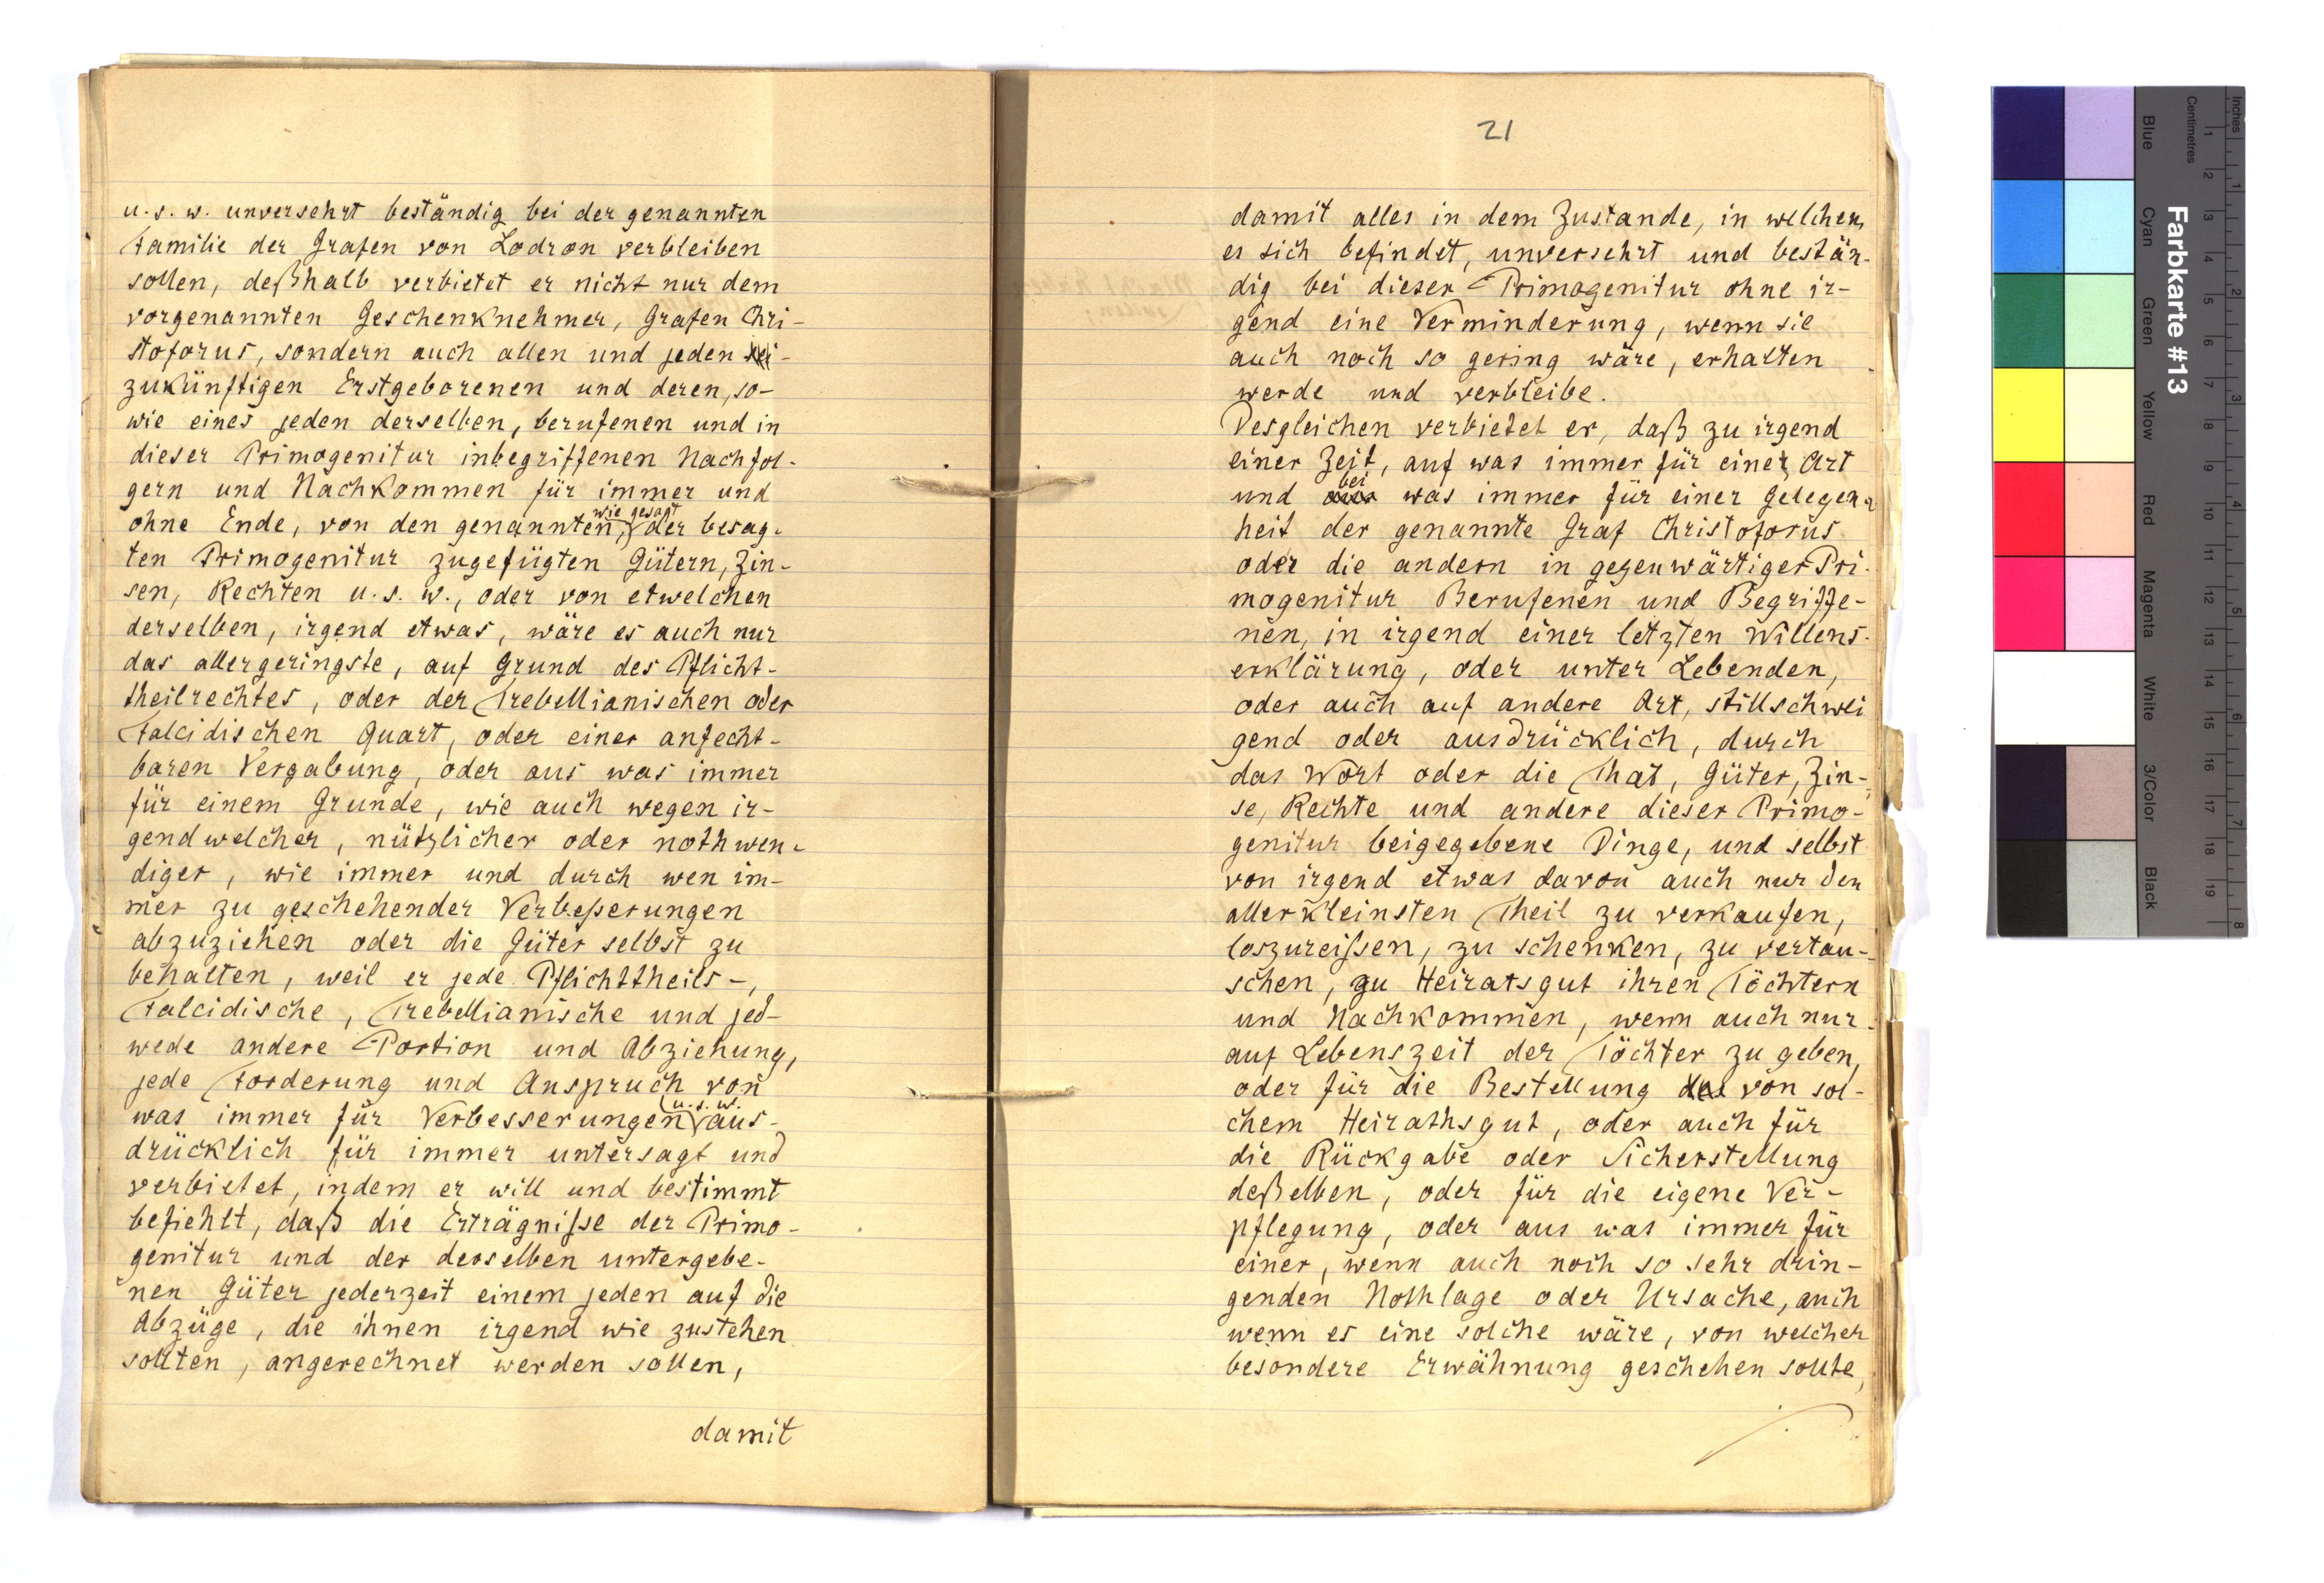 u. s. w. unversehrt beständig bei der genannten
Familie der Grafen von Lodron verbleiben
sollen, deßhalb verbietet er nicht nur dem
vorgenannten Geschenknehmer, Grafen Chri-
stoforus, sondern auch allen und jeden
zukünftigen Erstgeborenen und deren, so-
wie eines jeden derselben, berufenen und in
dieser Primogenitur inbegriffenen Nachfol-
gern und Nachkommen für immer und
ohne Ende, von den genannten, wie gesagt der besag-
ten Primogenitur zugefügten Gütern, Zin-
sen, Rechten u. s. w., oder von etwelchen
derselben, irgend etwas, wäre es auch nur
das allergeringste, auf Grund des Pflicht-
theilrechtes, oder der Trebellianischen oder
Falcidischen Quart, oder einer anfecht-
baren Vergabung, oder aus was immer
für einem Grunde, wie auch wegen ir-
gendwelcher, nützlicher oder nothwen-
diger, wie immer und durch wen im-
mer zu geschehender Verbeßerungen
abzuziehen oder die Güter selbst zu
behalten, weil er jede Pflichttheils-,
Falcidische, Trebellianische und jed-
wede andere Portion und Abziehung,
jede Forderung und Anspruch von
was immer für Verbesserungen u. s. w. aus-
drücklich für immer untersagt und
verbietet, indem er will und bestimmt
befiehlt, daß die Erträgniße der Primo-
genitur und der derselben untergebe-
nen Güter jederzeit einem jeden auf die
Abzüge, die ihnen irgend wie zustehen
sollten, angerechnet werden sollen,
damit
21
damit alles in dem Zustande, in welchem
es sich befindet, unversehrt und bestän-
dig bei dieser Primogenitur ohne ir-
gend eine Verminderung, wenn sie
auch noch so gering wäre, erhalten
werde und verbleibe.
Desgleichen verbietet er, daß zu irgend
einer Zeit, auf was immer für einer Art
und bei was immer für einer Gelegen-
heit der genannte Graf Christoforus
oder die andern in gegenwärtiger Pri-
mogenitur Berufenen und Begriffe-
nen, in irgend einer letzten Willens-
erklärung, oder unter Lebenden,
oder auch auf andere Art, stillschwei
gend oder ausdrücklich, durch
das Wort oder die That, Güter, Zin-
se, Rechte und andere dieser Primo-
genitur beigegebene Dinge, und selbst
von irgend etwas davon auch nur den
allerkleinsten Theil zu verkaufen,
loszureißen, zu schenken, zu vertau-
schen, zu Heiratsgut ihren Töchtern
und Nachkommen, wenn auch nur
auf Lebenszeit der Töchter zu geben,
oder für die Bestellung von sol-
chem Heirathsgut, oder auch für
die Rückgabe oder Sicherstellung
deßelben, oder für die eigene Ver-
pflegung, oder aus was immer für
einer, wenn auch noch so sehr drin-
genden Nothlage oder Ursache, auch
wenn es eine solche wäre, von welcher
besondere Erwähnung geschehen sollte,
Farbkarte #13
Blue
Cyan
Green
Yellow
Red
Magenta
White
3/Color
Black
Centimetres
1 2 3 4 5 6 7 8 9 10 11 12 13 14 15 16 17 18 19
Inches
1 2 3 4 5 6 7 8